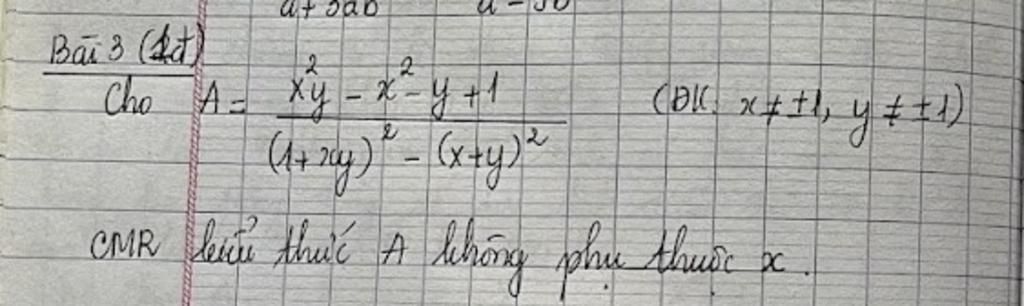 a+3ab a-3b
Bài 3 (1đ)
Cho A = x²y - x² - y + 1 / (1+xy)² - (x+y)² (ĐK: x ≠ ±1, y ≠ ±1)
CMR biểu thức A không phụ thuộc x.